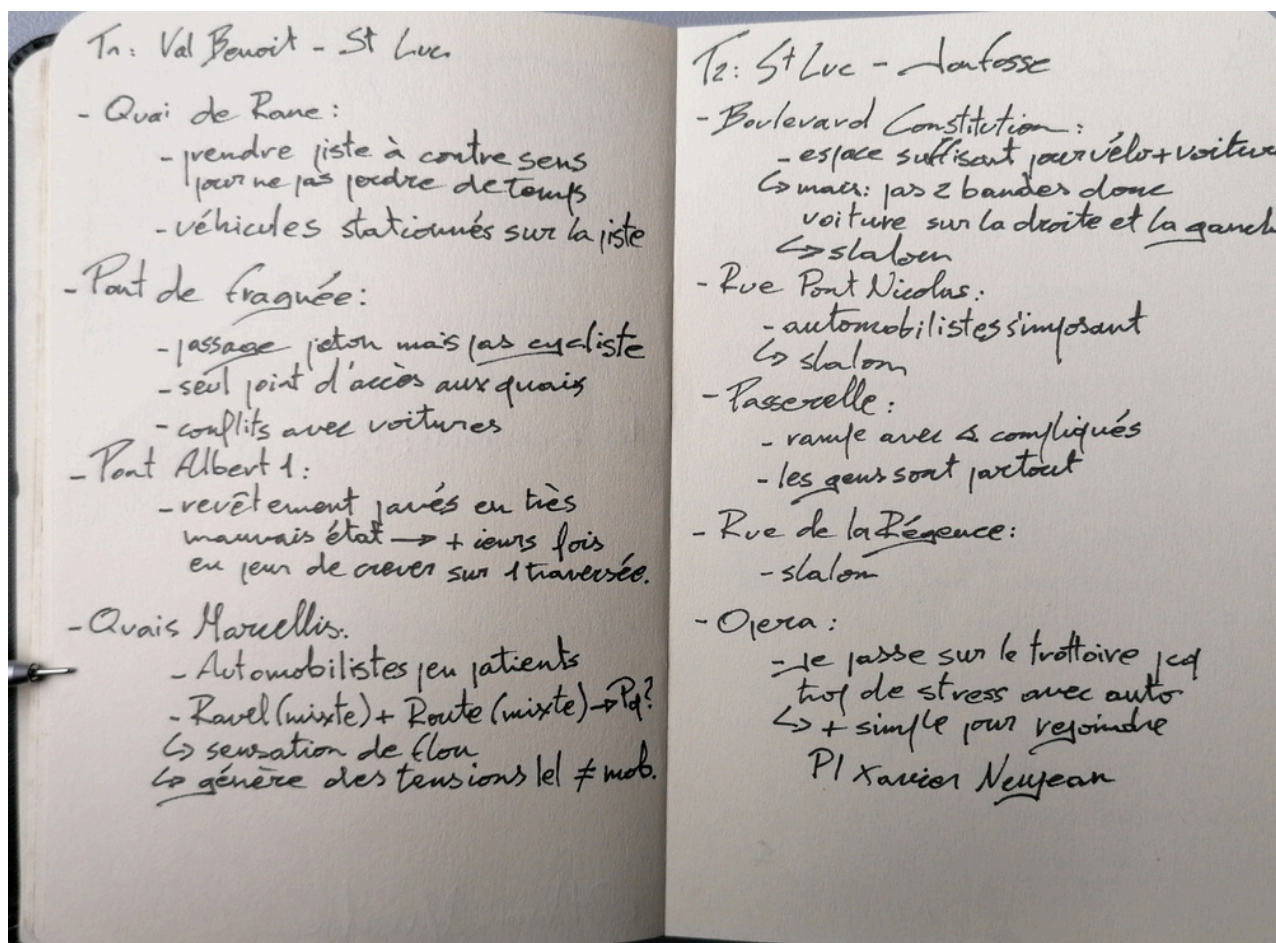 T1: Val Benoit - St Luc
- Quai de Rome:
- prendre piste à contre sens
pour ne pas perdre de temps
- véhicules stationnés sur la piste
- Pont de fragnée:
- passage piéton mais pas cycliste
- seul point d'accès aux quais
- conflits avec voitures
- Pont Albert 1:
- revêtement pavés en très
mauvais état → + ieurs fois
eu peur de crever sur 1 traversée.
- Quais Marcellis:
- Automobilistes peu patients
- Ravel (mixte) + Route (mixte) → Pq?
↳ sensation de flou
↳ génère des tensions ≠ mob.
T2: St Luc - Jonfosse
- Boulevard Constitution:
- espace suffisant pour vélo + voiture
↳ mais: pas 2 bandes donc
voiture sur la droite et la gauch
↳ slalom
- Rue Pont Nicolas:
- automobilistes s'imposant
↳ slalom
- Passerelle:
- rampe avec ∡ compliqués
- les gens sont partout
- Rue de la Régence:
- slalom
- Opera:
- je passe sur le trottoire pcq
trop de stress avec auto
↳ + simple pour rejoindre
Pl Xavier Neujean